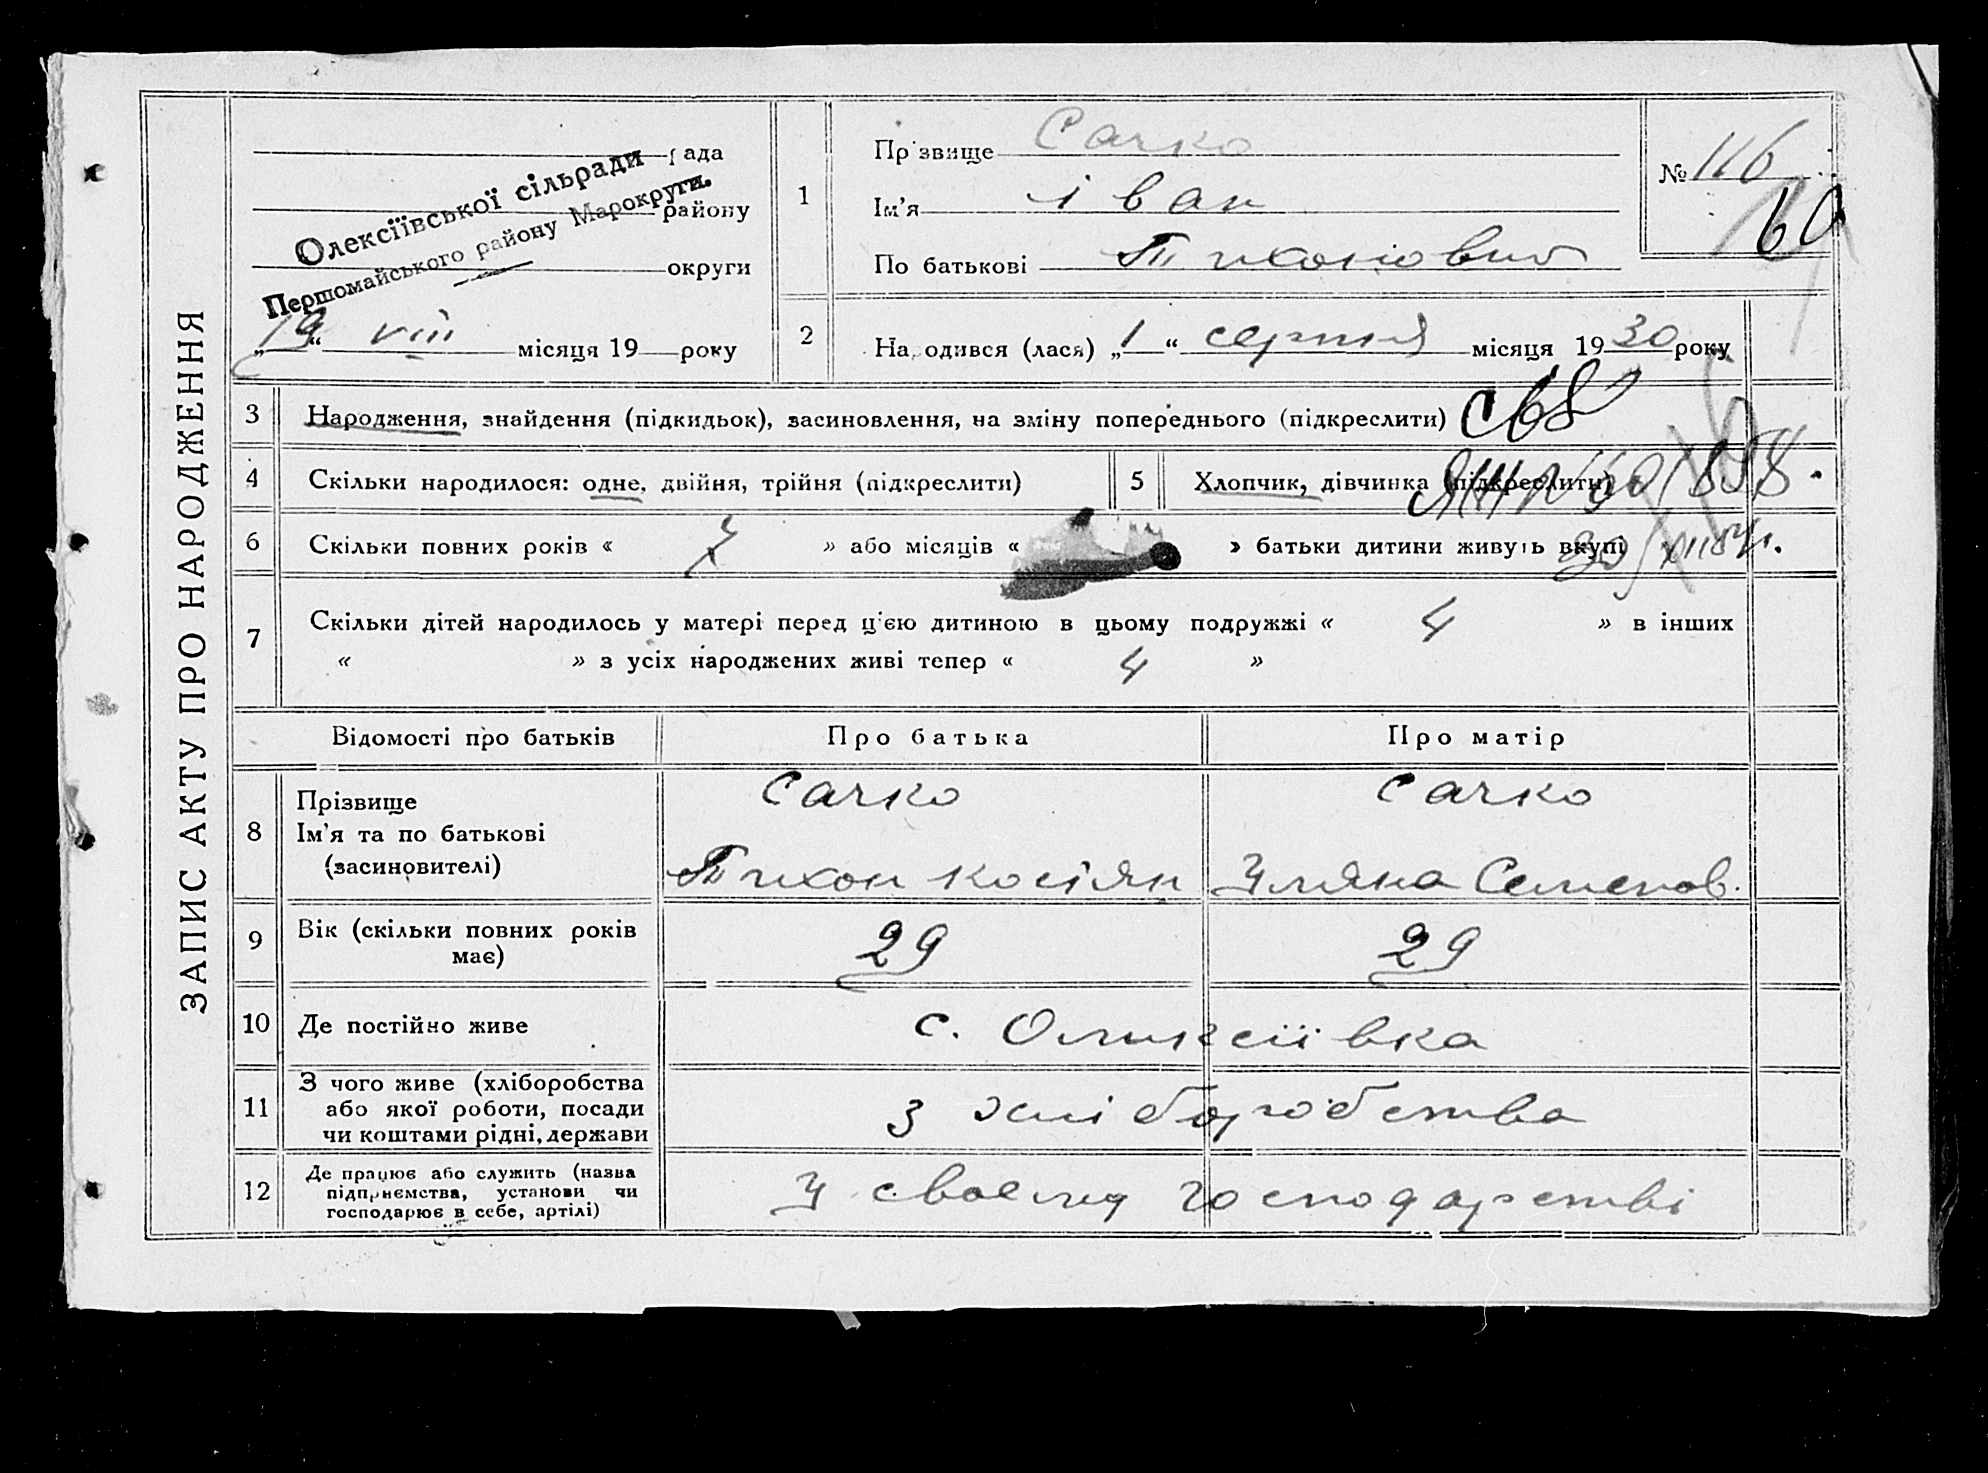 ЗАПИС АКТУ ПРО НАРОДЖЕННЯ
рада
району
округи
Олексіївської сільради
Першомайського району Марокруги.
„19“ VIII місяця 19 року
1
Прізвище Сачко
Ім’я Іван
По батькові Тихонович
№ 116
60
2
Народився (лася) „1“ серпня місяця 1930 року
3
Народження, знайдення (підкидьок), засиновлення, на зміну попереднього (підкреслити)
4
Скільки народилося: одне, двійня, трійня (підкреслити)
5
Хлопчик, дівчинка (підкреслити)
6
Скільки повних років « 7 » або місяців « » батьки дитини живуть вкупі
7
Скільки дітей народилось у матері перед ц'єю дитиною в цьому подружжі « 4 » в інших
« » з усіх народжених живі тепер « 4 »
Відомості про батьків
Про батька
Про матір
8
Прізвище
Ім’я та по батькові
(засиновителі)
Сачко
Тихон Косіян
Сачко
Уляна Семенов.
9
Вік (скільки повних років
має)
29
29
10
Де постійно живе
с. Оликсіівка
11
З чого живе (хліборобства
або якої роботи, посади
чи коштами рідні, держави
З хліборобства
12
Де працює або служить (назва
підприємства, установи чи
господарює в себе, артілі)
У своєму господарстві